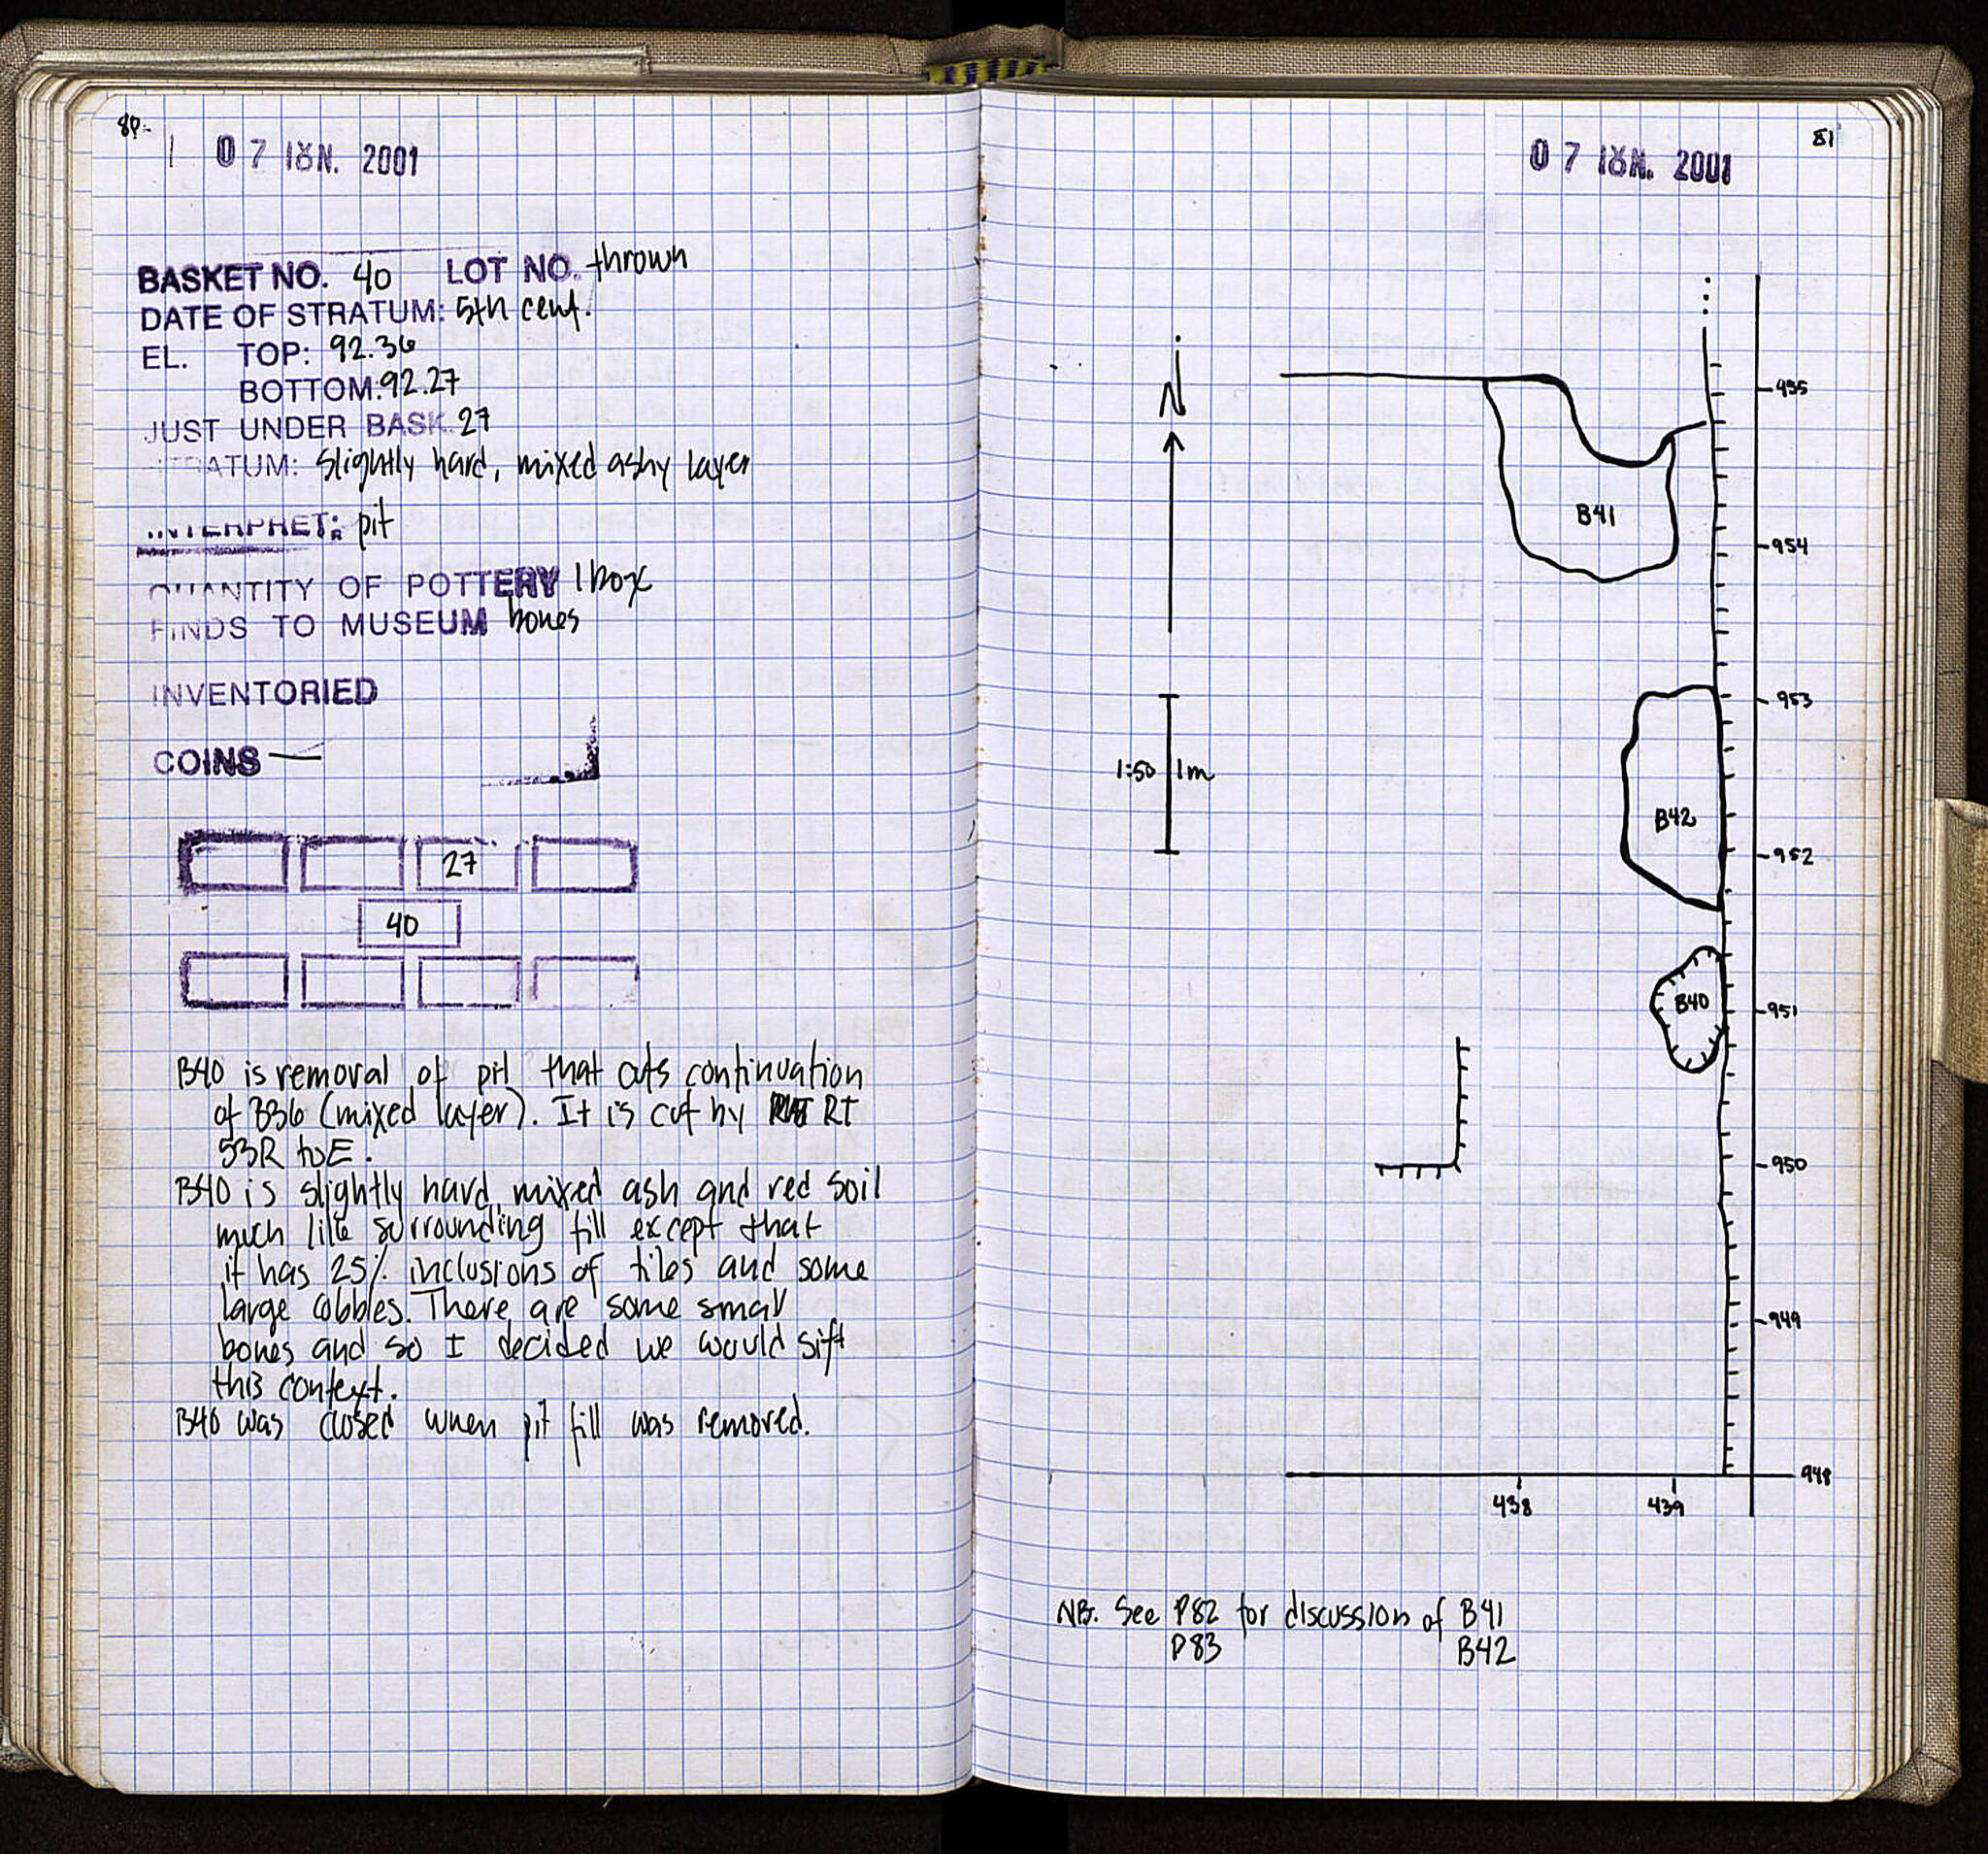 80
07 ΙΟΥΝ. 2001
BASKET NO. 40 LOT NO. thrown
DATE OF STRATUM: 5th cent.
EL. TOP: 92.36
BOTTOM: 92.27
JUST UNDER BASK. 27
STRATUM: slightly hard, mixed ashy layer
INTERPRET: pit
QUANTITY OF POTTERY 1 box
FINDS TO MUSEUM bones
INVENTORIED
COINS —
27
40
B40 is removal of pit that cuts continuation
of B36 (mixed layer). It is cut by RT
53R to E.
B40 is slightly hard, mixed ash and red soil
much like surrounding fill except that
it has 25% inclusions of tiles and some
large cobbles. There are some small
bones and so I decided we would sift
this context.
B40 was closed when pit fill was removed.
81
07 ΙΟΥΝ. 2001
N
955
B41
954
953
1:50 1m
B42
952
B40
951
950
949
948
438 439
NB. See P82 for discussion of B41
P83 B42